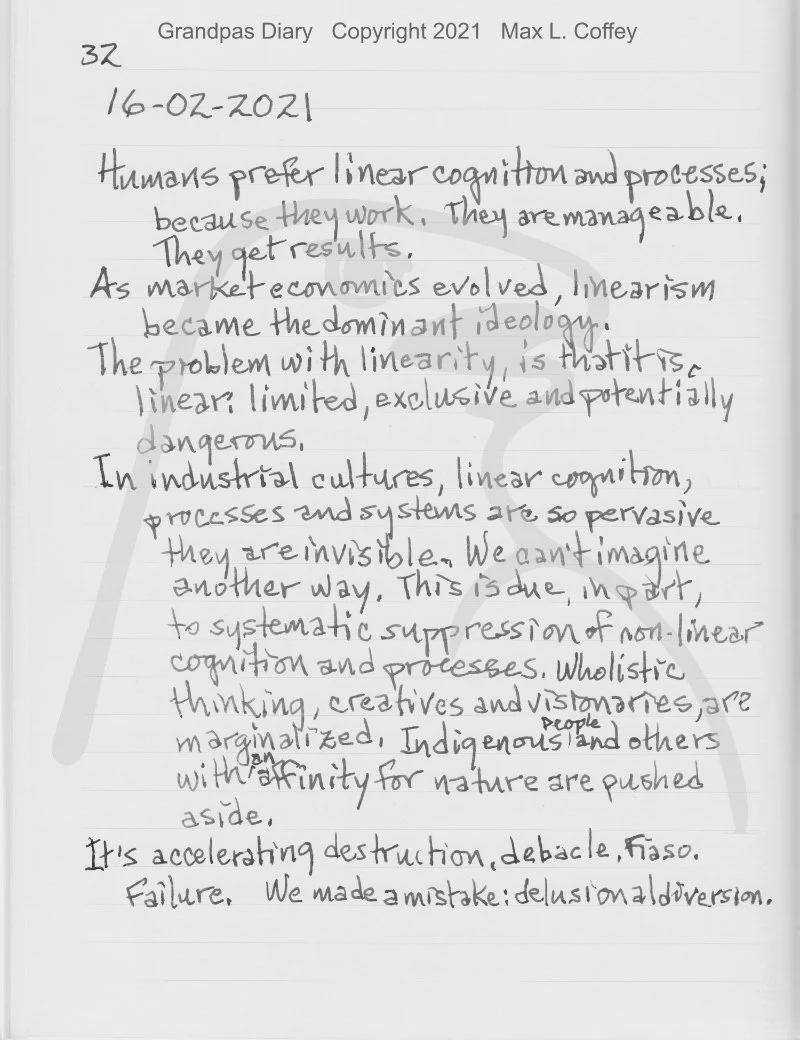 Grandpas Diary Copyright 2021 Max L. Coffey
32
16-02-2021
Humans prefer linear cognition and processes;
because they work. They are manageable.
They get results.
As market economics evolved, linearism
became the dominant ideology.
The problem with linearity, is that it is
linear: limited, exclusive and potentially
dangerous.
In industrial cultures, linear cognition,
processes and systems are so pervasive
they are invisible. We can't imagine
another way. This is due, in part,
to systematic suppression of non-linear
cognition and processes. Wholistic
thinking, creatives and visionaries, are
marginalized. Indigenous people and others
with an affinity for nature are pushed
aside.
It's accelerating destruction, debacle, Fiaso.
Failure. We made a mistake: delusional diversion.